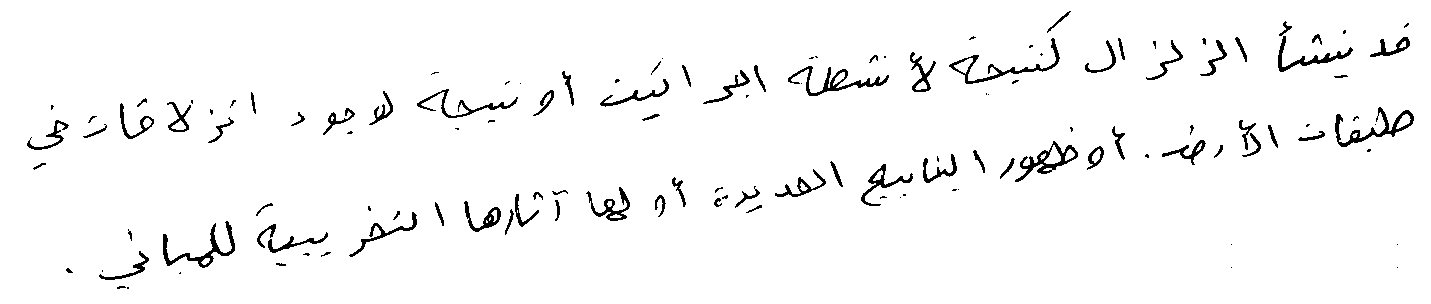 قد ينشأ الزلزال كنتيجة لأنشطة البراكين أو نتيجة لوجود انزلاقات في
طبقات الأرض. أو ظهور الينابيع الجديدة أو لها آثارها التخريبية للمباني.